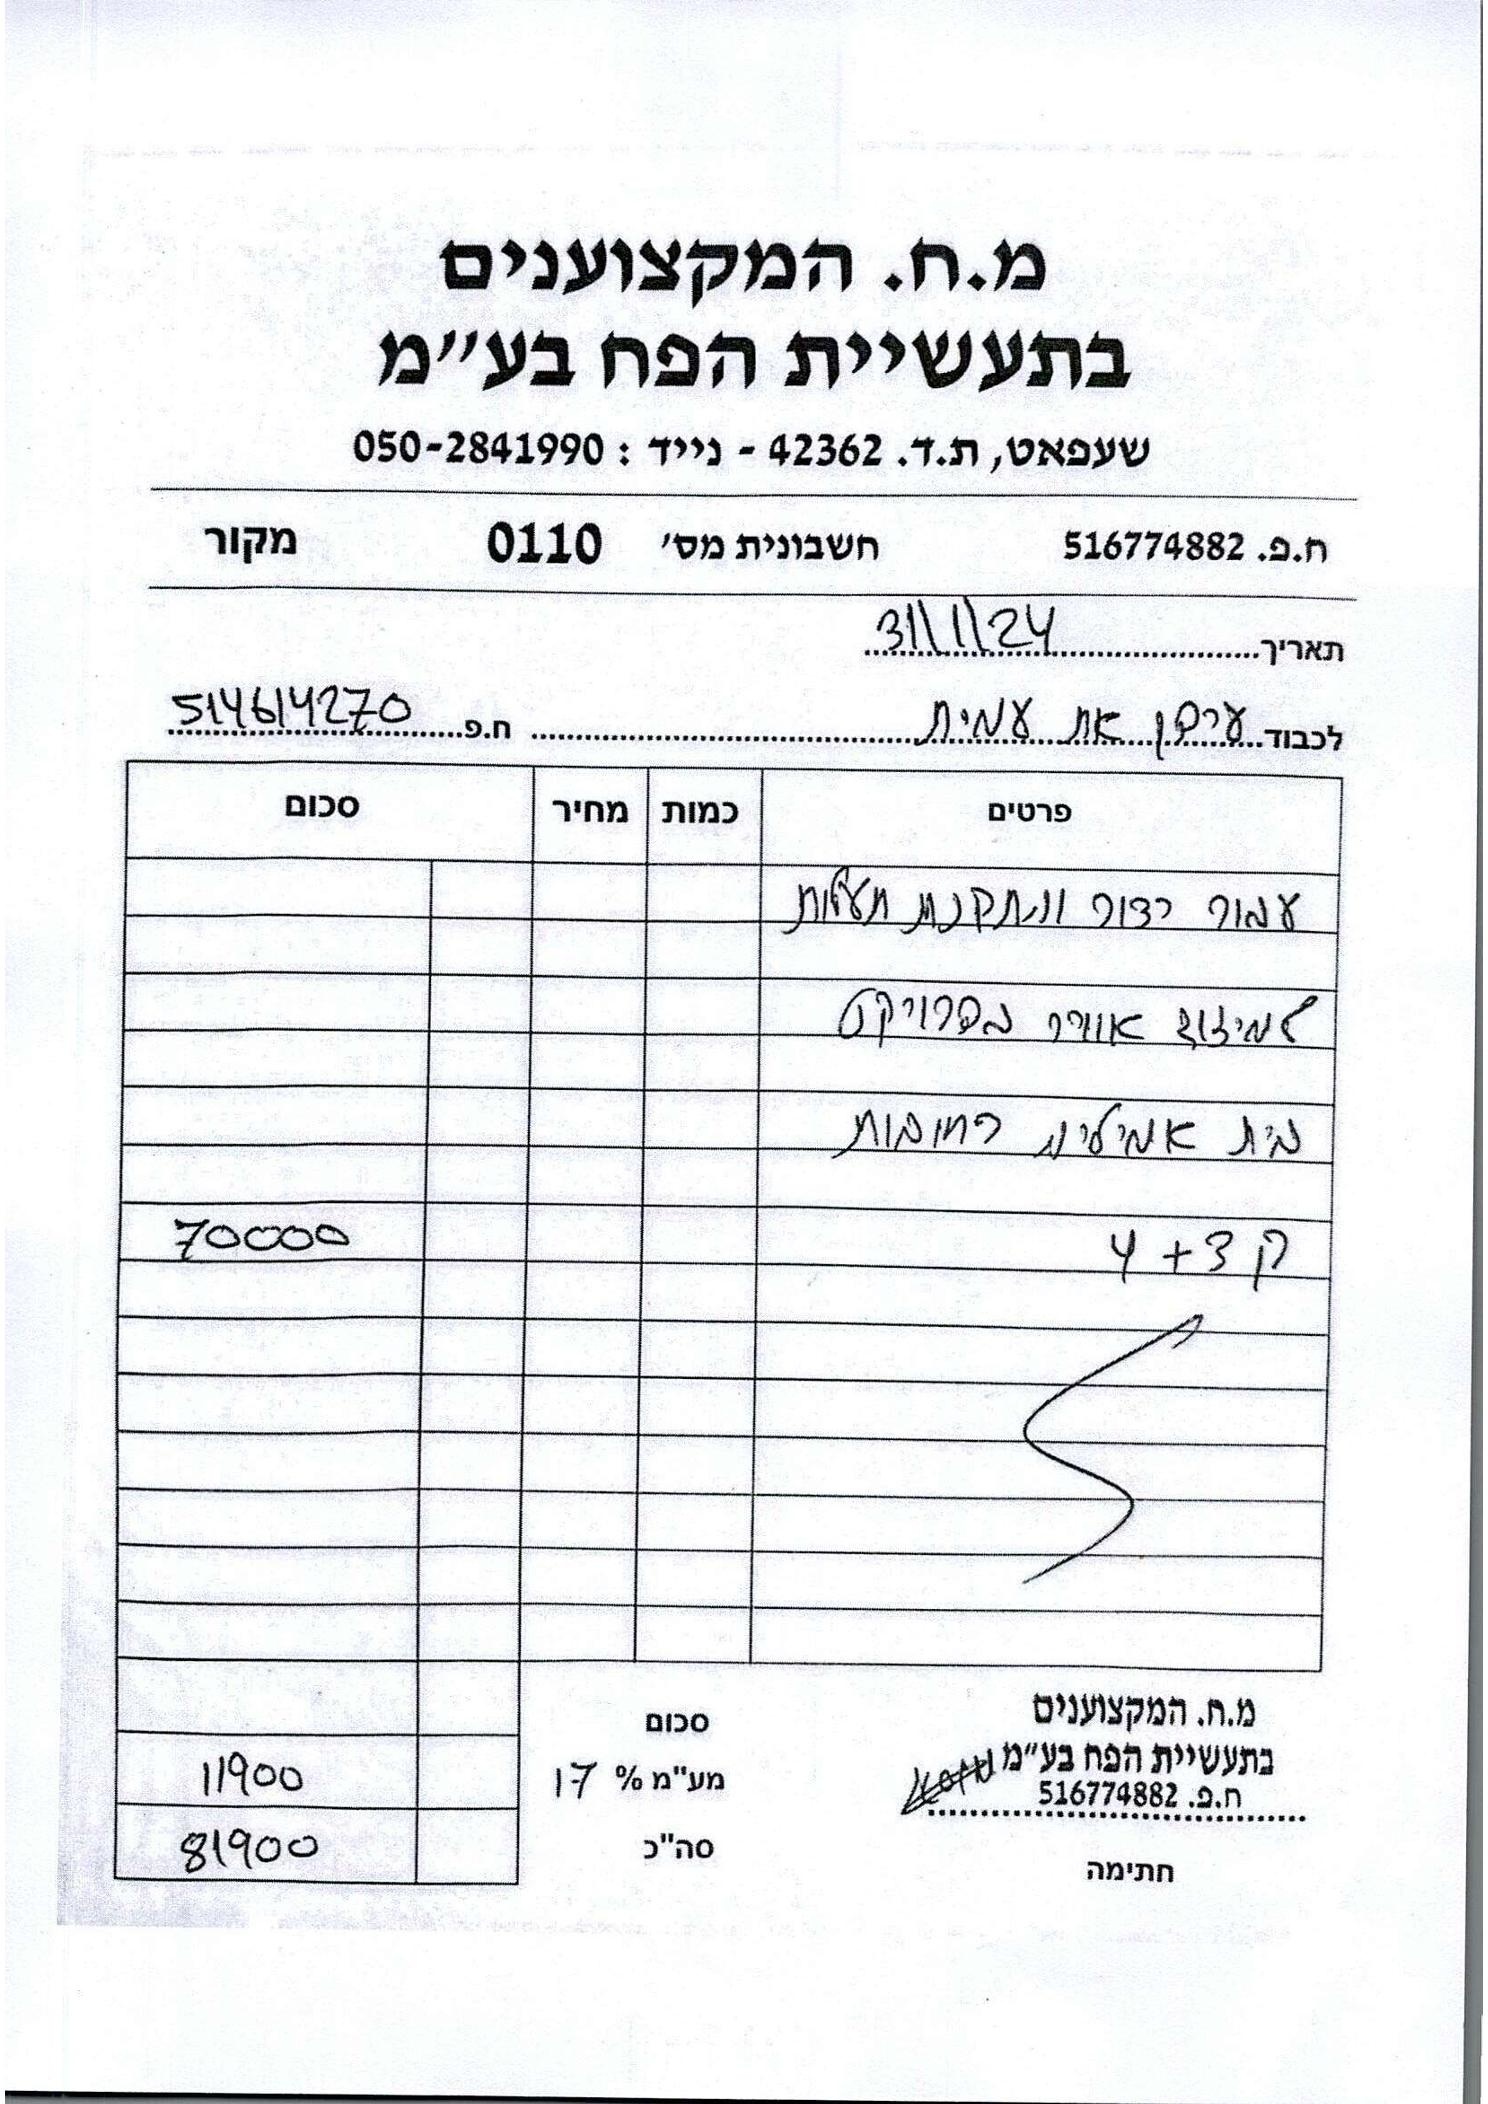 מ.ח. המקצוענים
בתעשיית הפח בע״מ
שעפאט, ת.ד. 42362 - נייד : 050-2841990
ח.פ. 516774882 חשבונית מס׳ 0110 מקור
תאריך 31/1/24
לכבוד ערסן את עמית ח.פ 514614270
פרטים כמות מחיר סכום
עבור יצור והתקנת תעלות
למיזוג אוויר בפרויקט
בית אמיליה רחובות
ק 3 + 4 70000
סכום
מע"מ % 17 11900
סה"כ 81900
מ.ח. המקצוענים
בתעשיית הפח בע״מ
ח.פ. 516774882
חתימה